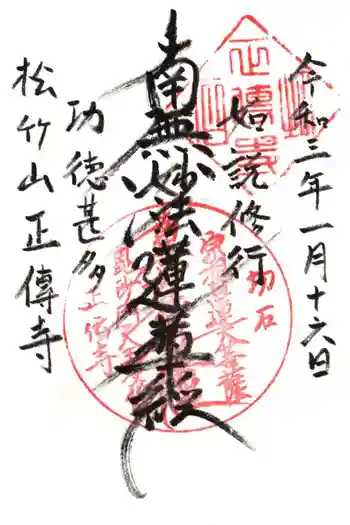 令和三年一月十六日
如説修行
南無妙法蓮華経
功徳甚多
松竹山正傳寺
正傳寺